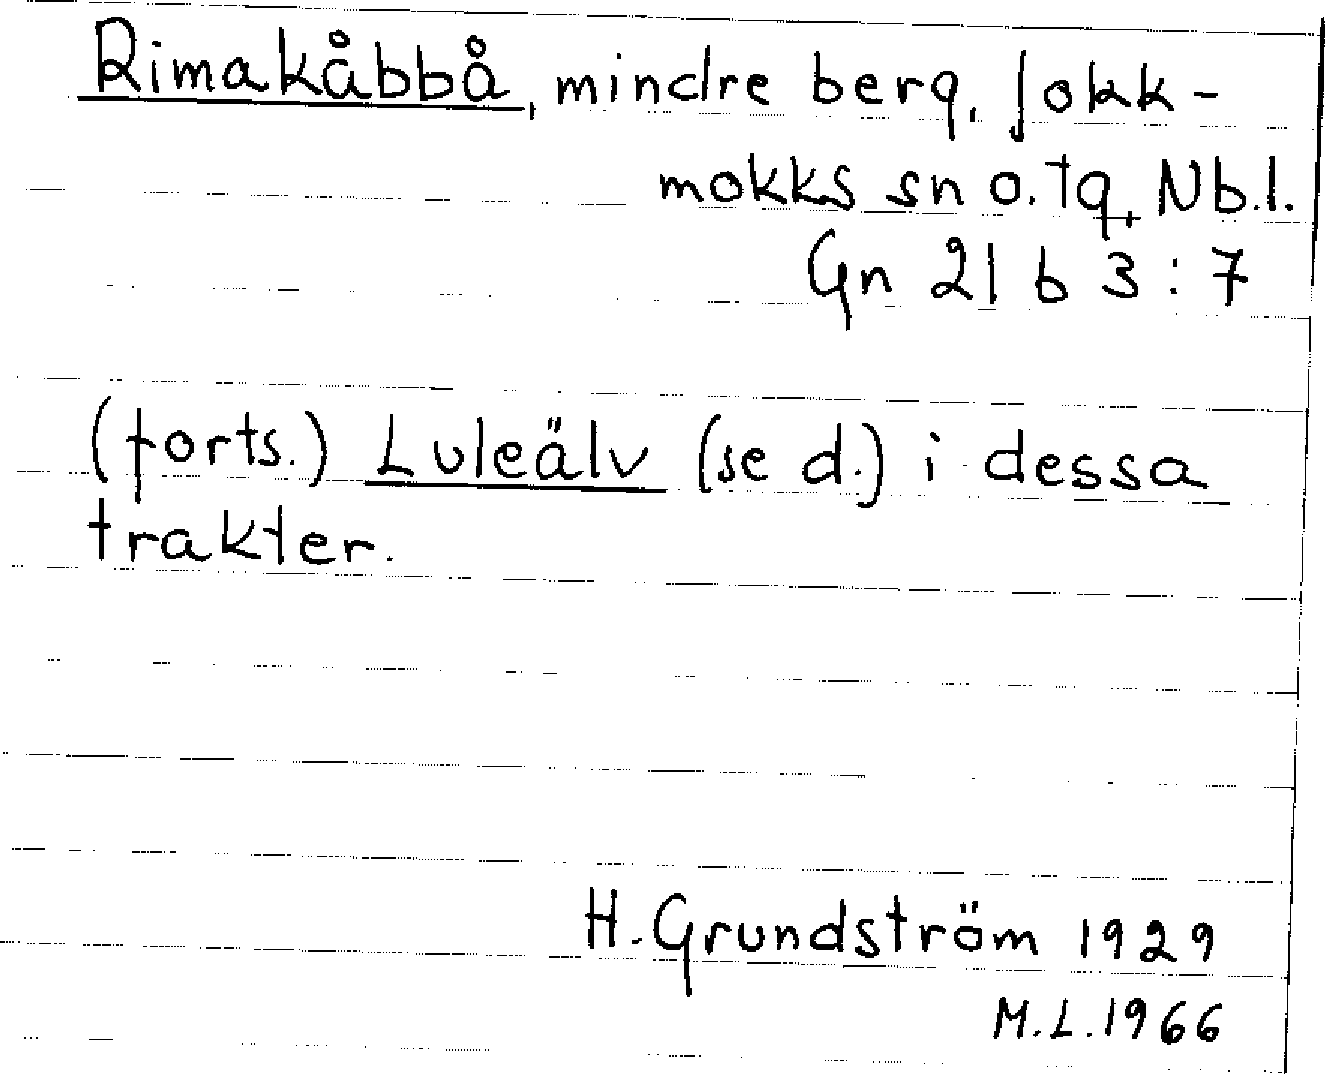 Rimakåbbå, mindre berg, Jokk-
mokks sn o. tg, Nb.l.
Gn 21 b 3:7
(forts.) Luleälv (se d.) i dessa
trakter.
H. Grundström 1929
M.L. 1966